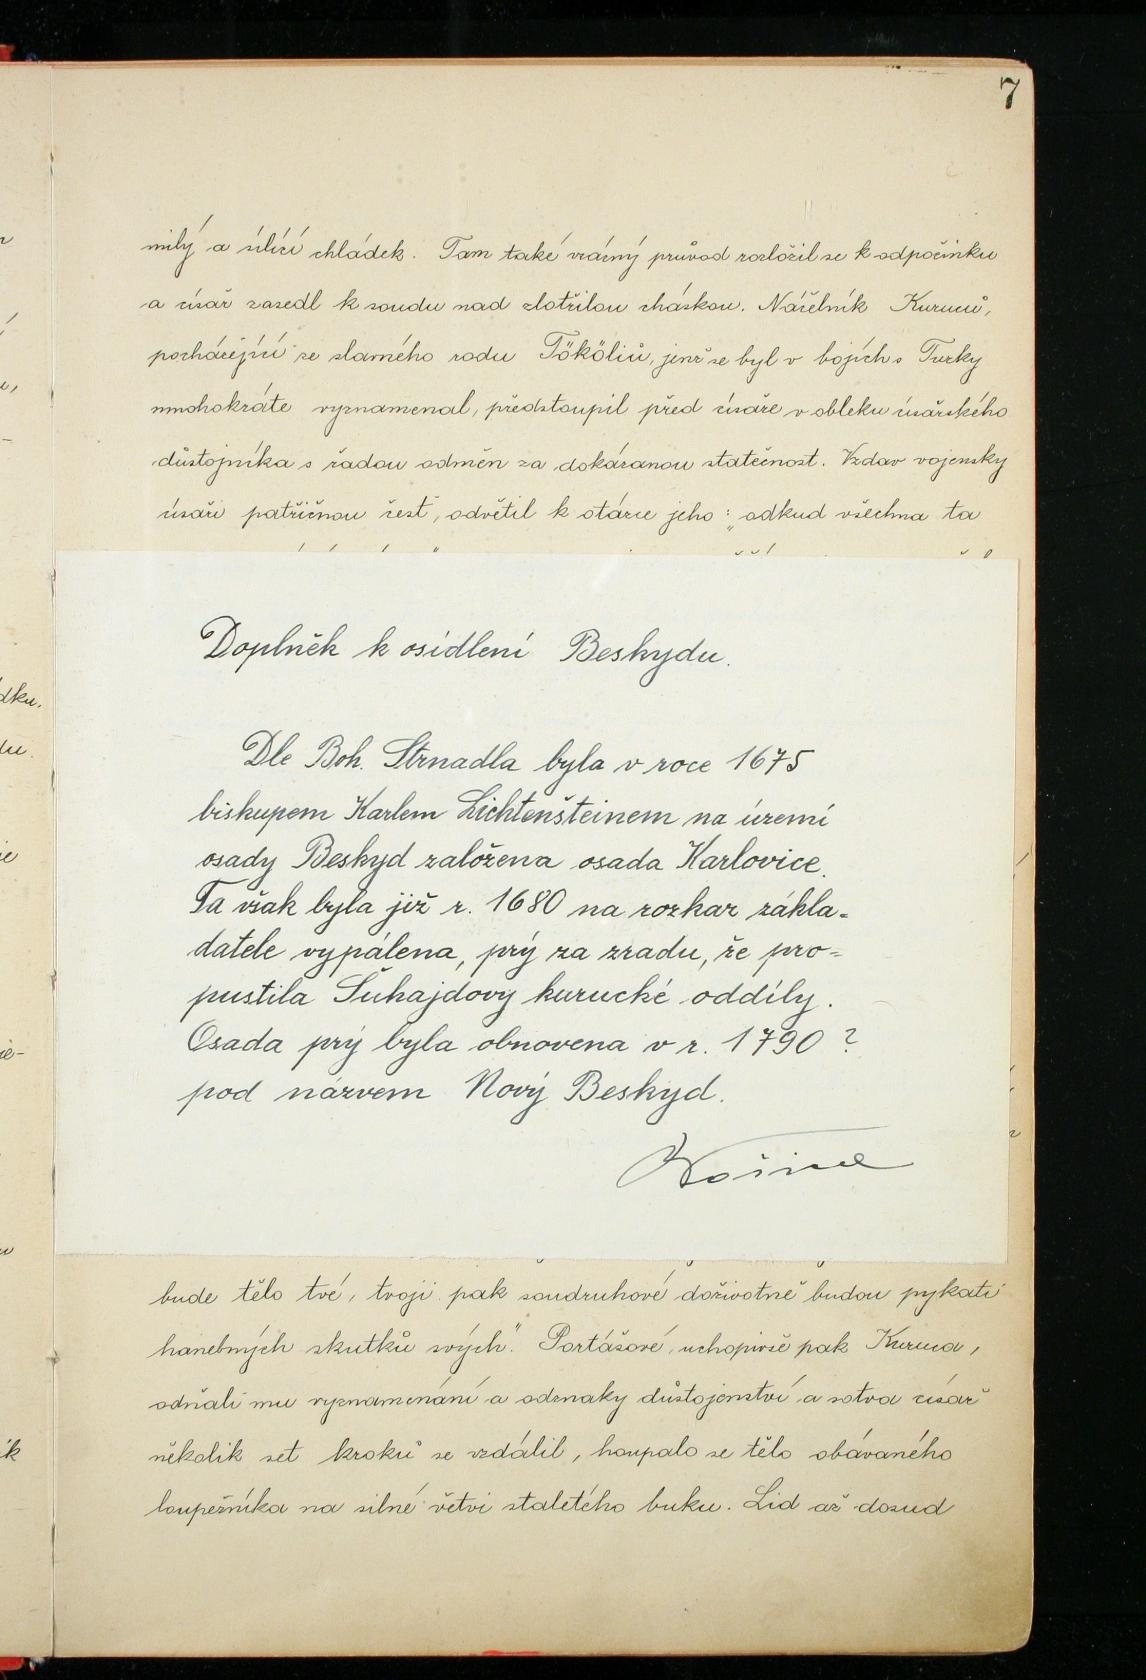 7
milý a sílící chládek. Tam také vzácný průvod rozložil se k odpočinku
a císař zasedl k soudu nad zlotřilou cháskou. Náčelník Kuruců,
pocházející ze slavného rodu Tököliů, jenž se byl v bojích s Turky
mnohokráte vyznamenal, předstoupil před císaře v obleku císařského
důstojníka s řadou odměn za dokázanou statečnost. Vzdav vojensky
císaři patřičnou čest, odvětil k otázce jeho: „odkud všechna ta
Doplněk k osídlení Beskydu.
Dle Boh. Strnadla byla v roce 1675
biskupem Karlem Lichtenšteinem na území
osady Beskyd založena osada Karlovice.
Ta však byla již r. 1680 na rozkaz zákla-
datele vypálena, prý za zradu, že pro-
pustila Šuhajdovy kurucké oddíly.
Osada prý byla obnovena v r. 1790 ?
pod názvem Nový Beskyd.
bude tělo tvé, tvoji pak soudruhové doživotně budou pykati
hanebných skutků svých." Portášové, uchopivše pak Kuruca,
odňali mu vyznamenání a odznaky důstojenství a sotva císař
několik set kroků se vzdálil, houpalo se tělo obávaného
loupežníka na silné větvi staletého buku. Lid až dosud